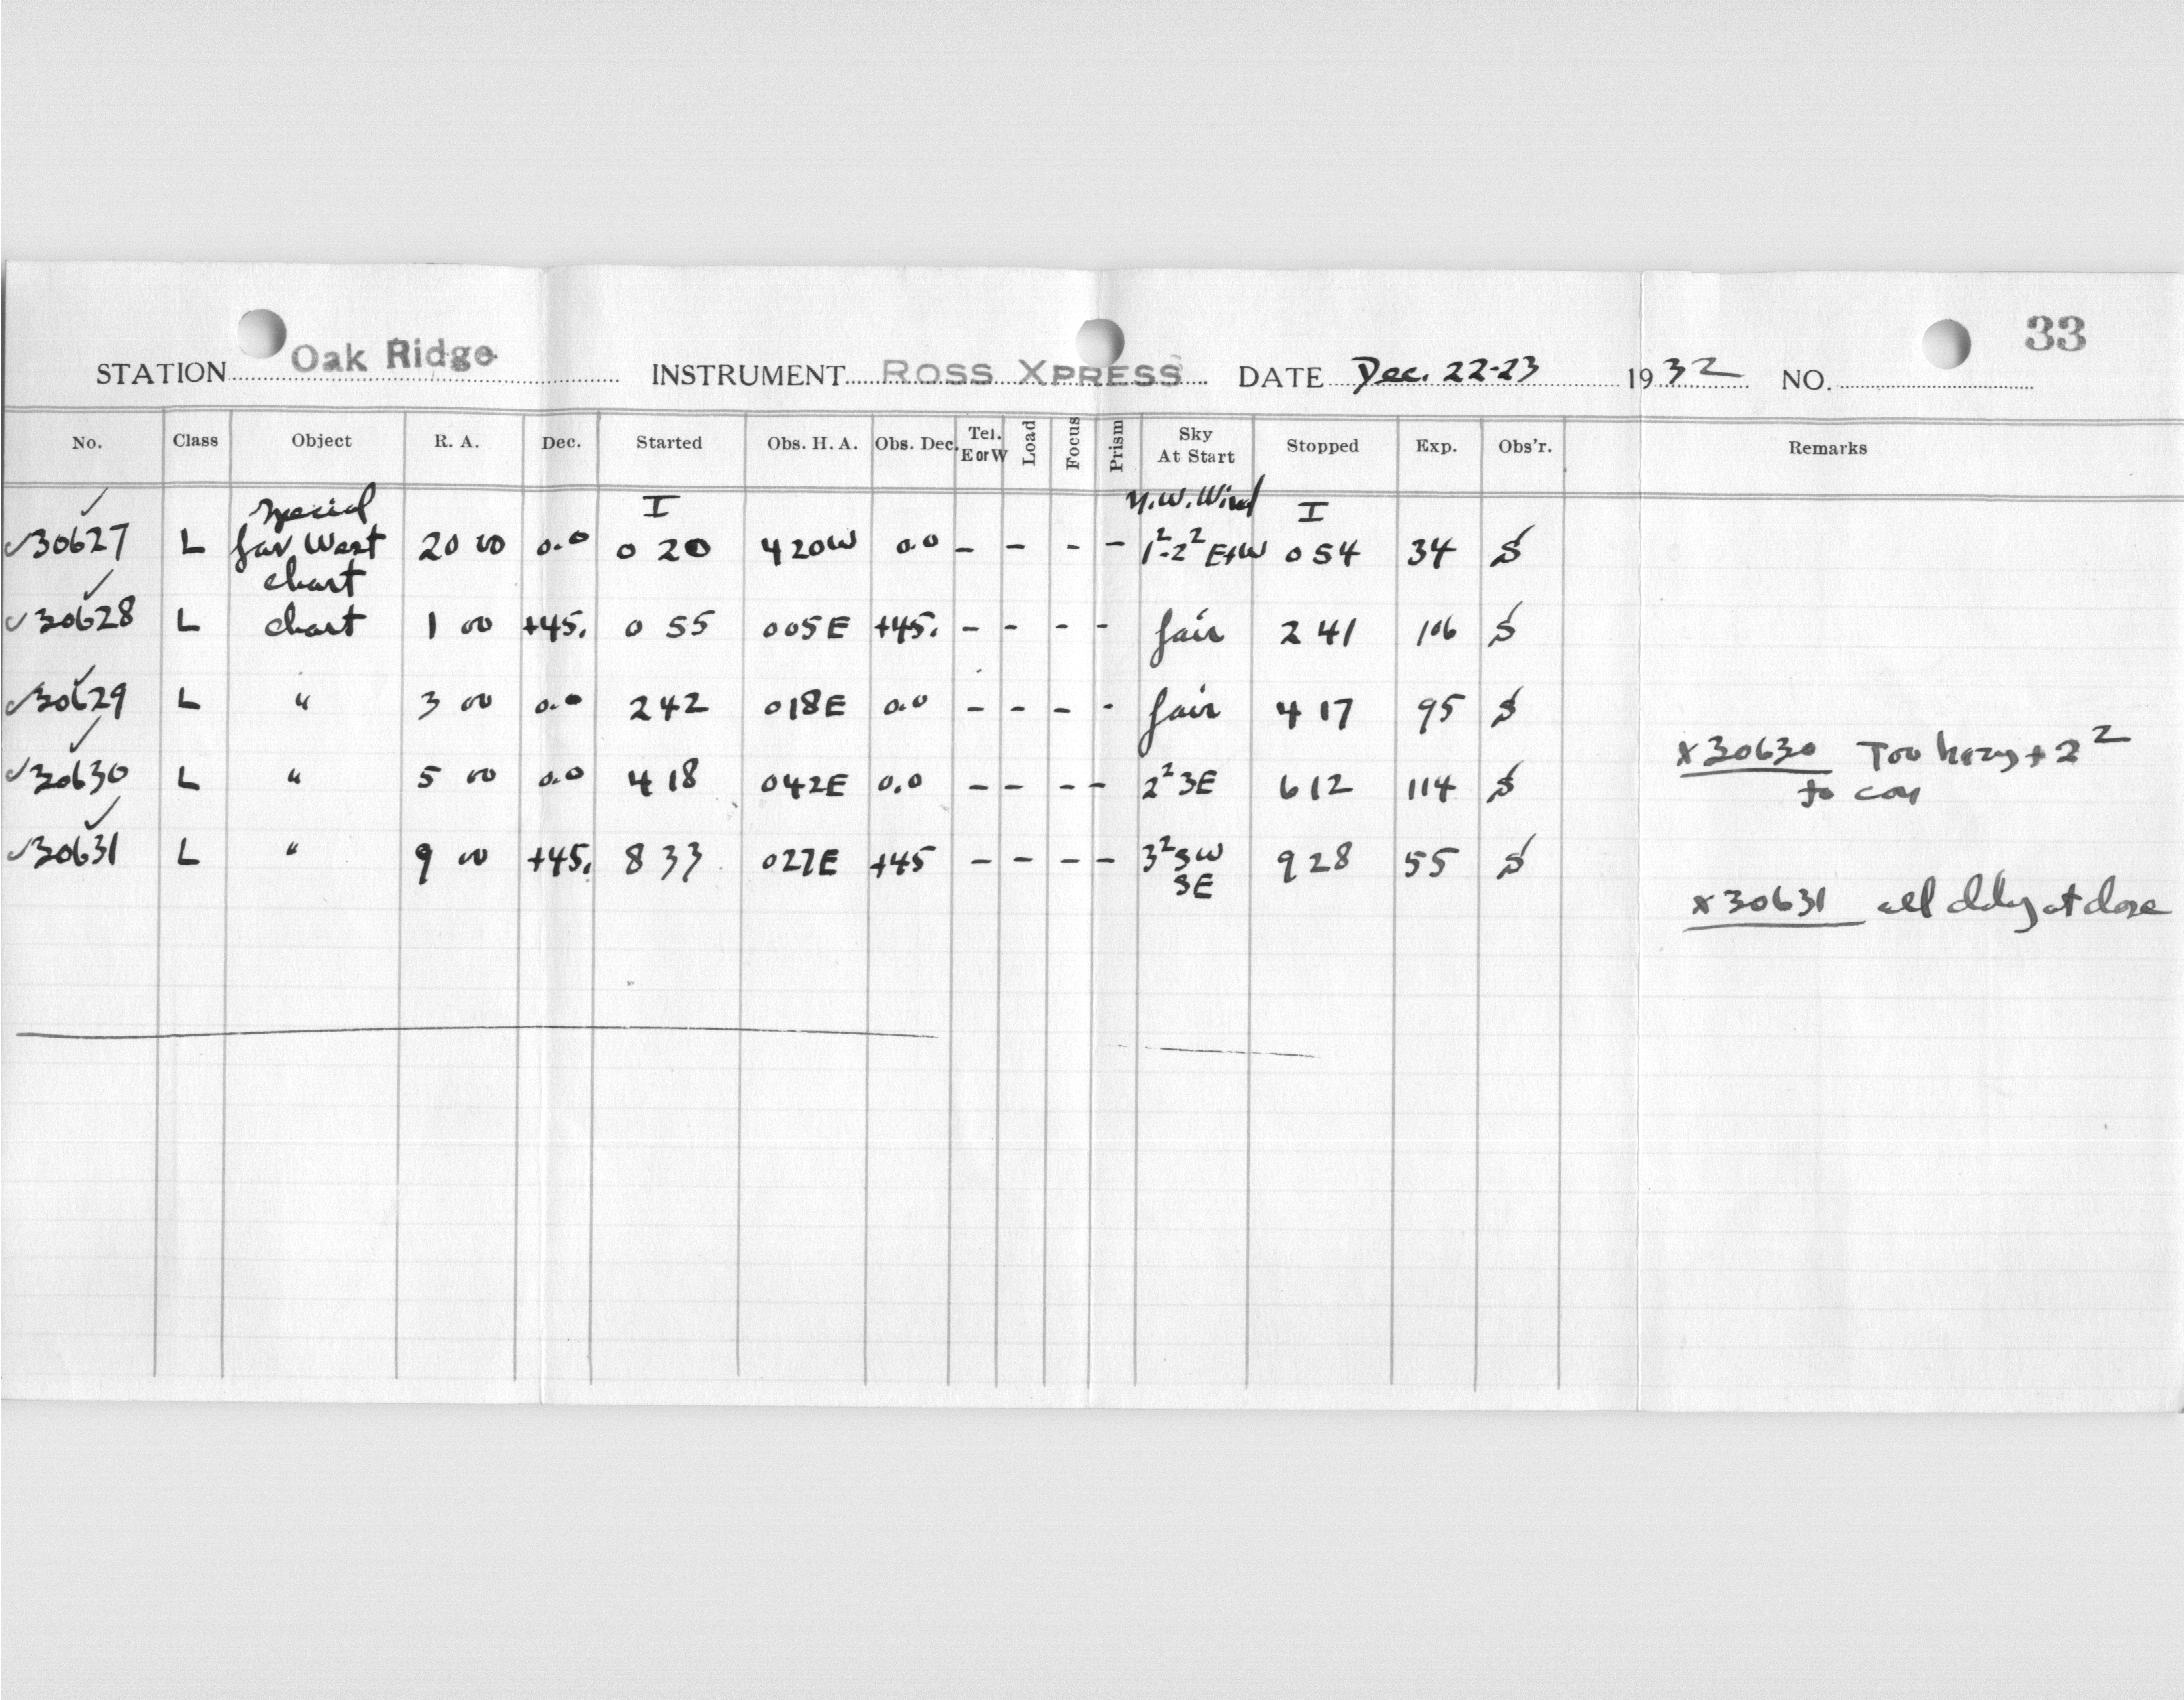 33
STATION Oak Ridge INSTRUMENT ROSS XPRESS DATE Dec. 22-23 1932 NO.
No. Class Object R. A. Dec. Started Obs. H. A. Obs. Dec. Tel. E or W Load Focus Prism Sky At Start Stopped Exp. Obs'r. Remarks
special I N.W. Wind I
✓30627 L far West 20 00 0.0 0 20 4 20W 0.0 - - - - 1²-2² E+W 0 54 34 S
chart
✓30628 L chart 1 00 +45. 0 55 0 05E +45. - - - - fair 2 41 106 S
✓30629 L " 3 00 0.0 2 42 0 18E 0.0 - - - - fair 4 17 95 S
✓30630 L " 5 00 0.0 4 18 0 42E 0.0 - - - - 2² 3E 6 12 114 S x30630 Too hazy + 2²
to
✓30631 L " 9 00 +45. 8 33 0 27E +45 - - - - 3² SW 9 28 55 S
SE
x30631 all cldy at close